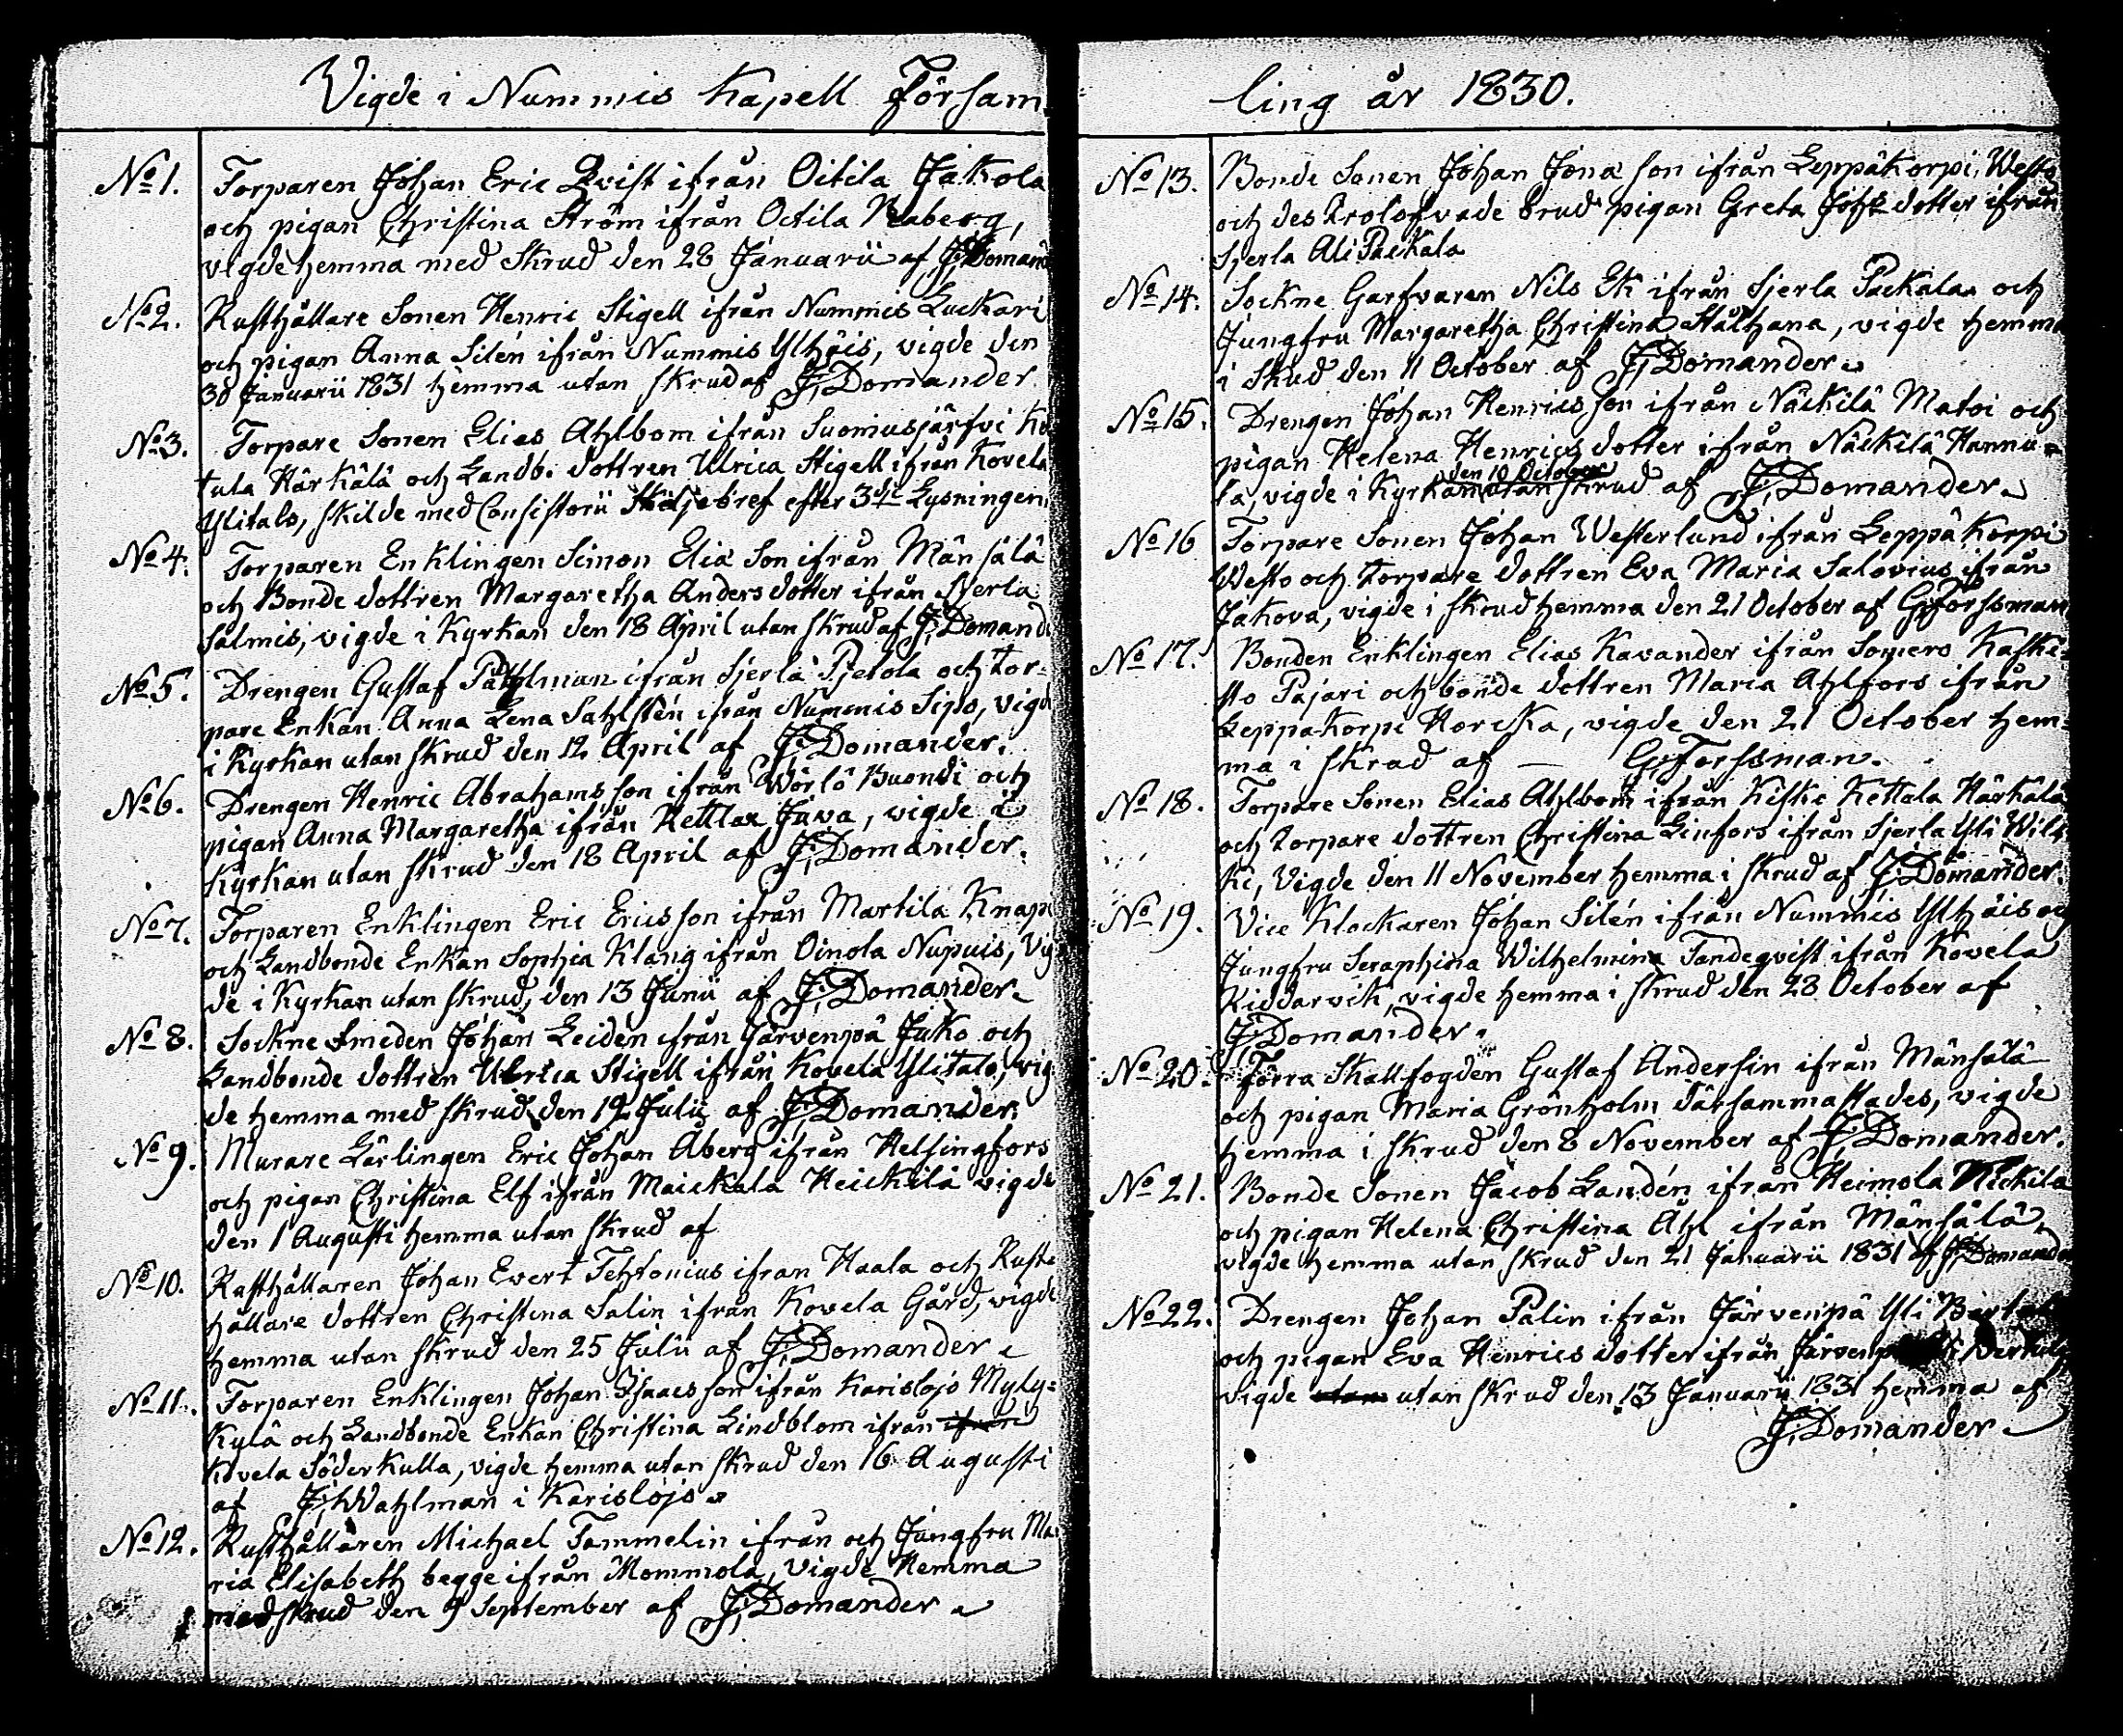 Vigde i Nummis Kapell Församling år 1830.
No 1. Torparen Johan Eric Qvist ifrån Oitila Jakola
och pigan Christina Ström ifrån Oitila
vigde hemma med Skrud den 28 Januarii af J: Domand
No 2. Rusthållare Sonen Henric Stigell ifrån Nummis Luckari
och pigan Anna Silén ifrån Nummis Ylhäis, vigde den
30 Januarii 1831 hemma utan skrud af J: Domander
No 3. Torpare Sonen Elias Ahlbom ifrån Suomusjärfvi
tula Härkälä och Landb. dottren Ulrica Stigell ifrån Kovela
Ylitalo, skilde med Consistorii Skiljebref efter 3dje Lysningen
No 4. Torparen Enklingen Simon Elia Son ifrån Mänsälä
och Bonde dottren Margaretha Anders dotter ifrån
Salmis, vigde i Kyrkan den 18 April utan skrud af J: Domand
No 5. Drengen Gustaf Påhlman ifrån Sjerla Pjetola och Tor-
pare Enkan Anna Lena Sahlstén ifrån Nummis Sipo, vigd
i Kyrkan utan skrud den 12 April af J: Domander.
No 6. Drengen Henric Abrahams son ifrån Wörlö Buondi och
pigan Anna Margaretha ifrån Hettlax Juva, vigde i
Kyrkan utan skrud den 18 April af J: Domander.
No 7. Torparen Enklingen Eric Ericsson ifrån Martila Knap
och Landbonde Enkan Sophia Klang ifrån Oinola Nupuis, Vig
de i Kyrkan utan skrud, den 13 Junii af J: Domander
No 8. Sockne Smeden Johan Leiden ifrån Järvenpä Juko och
Landbonde dottren Ulrica Stigell ifrån Kovela Ylitalo, vig
de hemma med skrud den 12 Julii af J: Domander
No 9. Murare Lärlingen Eric Johan Åberg ifrån Helsingfors
och pigan Christina Elf ifrån Maickala Heickilä vigde
den 1 Augusti hemma utan skrud af
No 10. Rusthållaren Johan Evert Tehtonius ifran Haala och Rust
hållare dottren Christina Salin ifrån Kovela Gård, vigde
hemma utan skrud den 25 Julii af J: Domander
No 11. Torparen Enklingen Johan Isaacsson ifrån Karislojo Myly=
Kylä och Landbonde Enkan Christina Lindblom ifrån ifrån
Kovela Söderkulla, vigde hemma utan skrud den 16 Augusti
af J: Wahlman i Karislojo
No 12. Rusthållaren Michael Tammelin ifrån och Jungfru Ma
ria Elisabeth begge ifrån Mommola, Vigde Hemma
med skrud den 9 September af J: Domander
No 13. Bonde Sonen Johan Jona son ifrån Leppäkorpi Westo
och des trolofvade brud pigan Greta Joh: dotter ifrån
Sjerla Ali Packala
No 14. Sockne Garfvaren Nils Ek ifrån Sjerla Packala och
Jungfru Margaretha Christina Stålhana, vigde hemma
i Skud den 11 October af J: Domander
No 15. Drengen Johan Henrics son ifrån Näckilä Matoi och
pigan Helena Henrics dotter ifrån Näckilä Hannu=
la, vigde i Kyrkan den 10 October utan skrud af J: Domander
No 16 Torpare Sonen Johan Westerlund ifrån Leppäkorpi
Westo och torpare dottren Eva Maria Salovius ifrån
Jakova, vigde i skrud hemma den 21 October af G: Forssman
No 17. Bonden Enklingen Elias Kavander ifrån Somero Kaski-
sto Pajari och bonde dottren Maria Ahlfors ifrån
Leppakorpi Horcka, vigde den 21 October hem=
ma i skrud af — G: Forssman.
No 18. Torpare Sonen Elias Ahlbom ifrån Kisko Kettala Härkälä
och torpare dottren Christina Linfors ifrån Sjerla Yli Wils
ki, Vigde den 11 November hemma i skrud af J: Domander.
No 19. Vice Klockaren Johan Silén ifrån Nummis Ylhäis och
Jungfru Seraphina Wilhelmina Tandeqvist ifrån Kovela
Riddarvik, vigde hemma i skrud den 28 October af
J: Domander.
No 20. Förra Skallfogden Gustaf Andersin ifrån Mänsälä
och pigan Maria Grönholm därsammastades, vigde
hemma i skrud den 8 November af J: Domander.
No 21. Bonde Sonen Jacob Landén ifrån Heimola Hickila
och pigan Helena Christina Åhl ifrån Mänsälä,
vigde hemma utan skrud den 21 Januarii 1831 af J: Domande
No 22. Drengen Johan Palin ifrån Järvenpä Yli
och pigan Eva Henrics dotter ifrån
vigde utan utan skrud den 13 Januarii 1831 hemma af
J: Domander